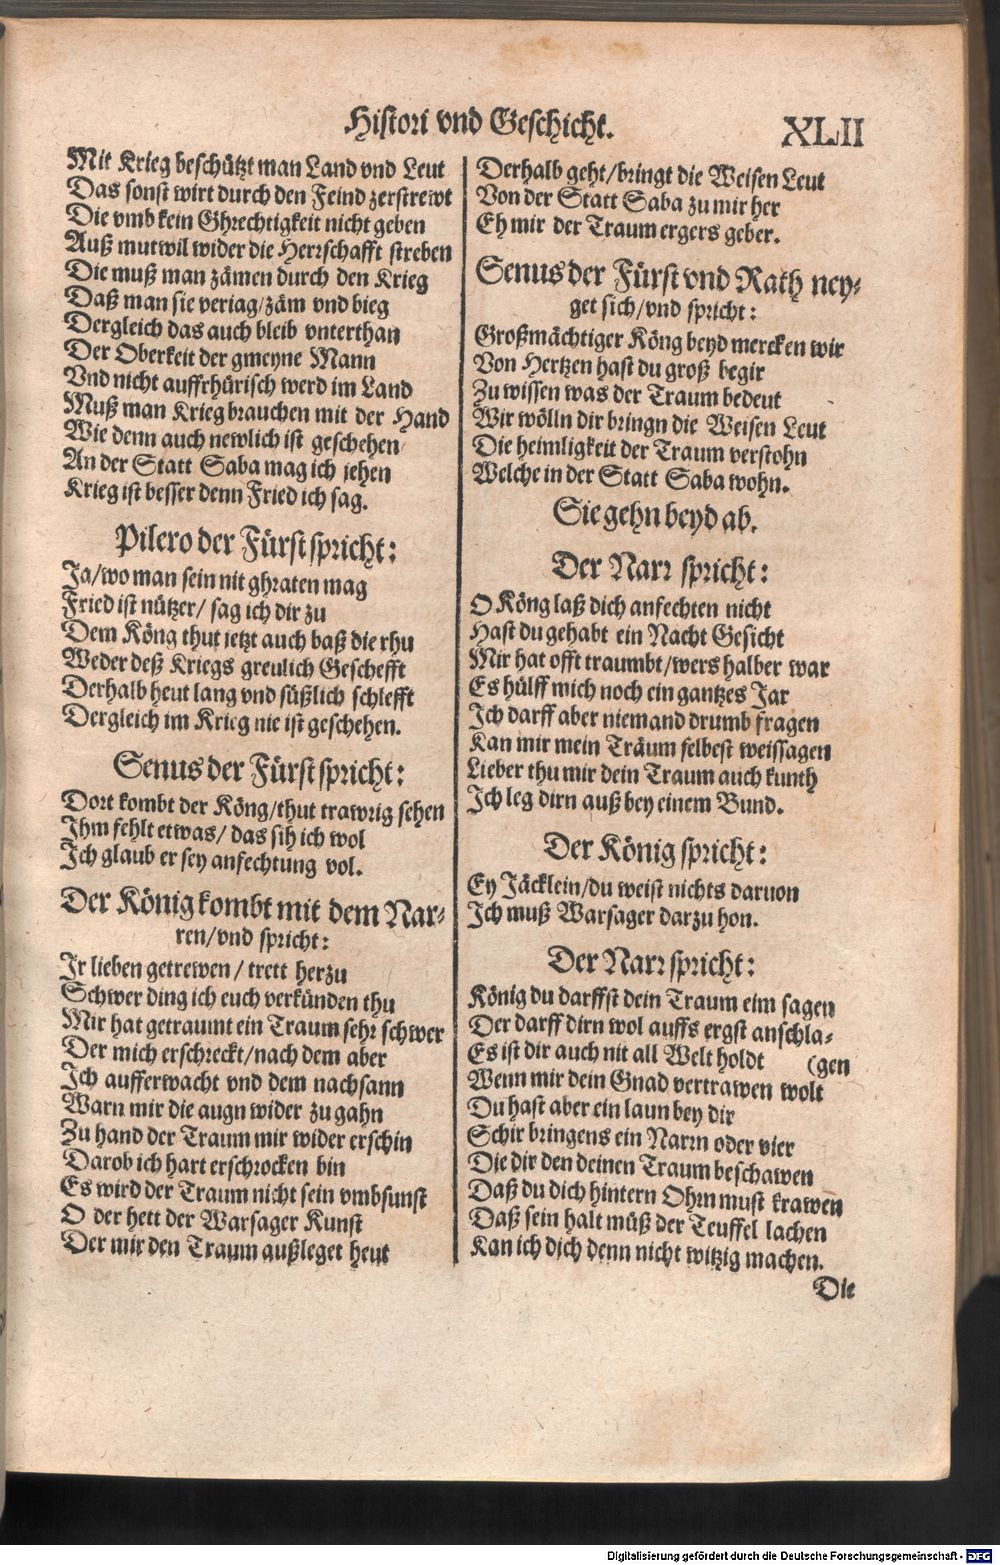 Histori vnd Geschicht.
XLII
Mit Krieg beschützt man Land vnd Leut
Das sonst wirt durch den Feind zerstrewt
Die vmb kein Ghrechtigkeit nicht geben
Auß mutwil wider die Herrschafft streben
Die muß man zämen durch den Krieg
Daß man sie veriag/zäm vnd bieg
Dergleich das auch bleib vnterthan
Der Oberkeit der gmeyne Mann
Vnd nicht auffrhürisch werd im Land
Muß man Krieg brauchen mit der Hand
Wie denn auch newlich ist geschehen
An der Statt Saba mag ich jehen
Krieg ist besser denn Fried ich sag.
Pilero der Fürst spricht:
Ja/wo man sein nit ghraten mag
Fried ist nützer/ sag ich dir zu
Dem Köng thut jetzt auch baß die rhu
Weder deß Kriegs greulich Geschefft
Derhalb heut lang vnd süßlich schlefft
Dergleich im Krieg nie ist geschehen.
Senus der Fürst spricht:
Dort kombt der Köng/thut trawrig sehen
Ihm fehlt etwas/ das sih ich wol
Ich glaub er sey anfechtung vol.
Der König kombt mit dem Nar-
ren/vnd spricht:
Ir lieben getrewen/ trett herzu
Schwer ding ich euch verkünden thu
Mir hat getraumt ein Traum sehr schwer
Der mich erschreckt/nach dem aber
Ich aufferwacht vnd dem nachsann
Warn mir die augn wider zu gahn
Zu hand der Traum mir wider erschin
Darob ich hart erschrocken bin
Es wird der Traum nicht sein vmbsunst
O der hett der Warsager Kunst
Der mir den Traum außleget heut
Derhalb geht/bringt die Weisen Leut
Von der Statt Saba zu mir her
Eh mir der Traum ergers geber.
Senus der Fürst vnd Rath ney-
get sich/vnd spricht:
Großmächtiger Köng beyd mercken wir
Von Hertzen hast du groß begir
Zu wissen was der Traum bedeut
Wir wölln dir bringn die Weisen Leut
Die heimligkeit der Traum verstohn
Welche in der Statt Saba wohn.
Sie gehn beyd ab.
Der Narr spricht:
O Köng laß dich anfechten nicht
Hast du gehabt ein Nacht Gesicht
Mir hat offt traumbt/wers halber war
Es hülff mich noch ein gantzes Jar
Ich darff aber niemand drumb fragen
Kan mir mein Träum selbest weissagen
Lieber thu mir dein Traum auch kunth
Ich leg dirn auß bey einem Bund.
Der König spricht:
Ey Jäcklein/du weist nichts daruon
Ich muß Warsager darzu hon.
Der Narr spricht:
König du darffst dein Traum eim sagen
Der darff dirn wol auffs ergst anschla-
Es ist dir auch nit all Welt holdt (gen
Wenn mir dein Gnad vertrawen wolt
Du hast aber ein laun bey dir
Schir bringens ein Narrn oder vier
Die dir den deinen Traum beschawen
Daß du dich hintern Ohrn must krawen
Daß sein halt müß der Teuffel lachen
Kan ich dich denn nicht witzig machen.
Die
Digitalisierung gefördert durch die Deutsche Forschungsgemeinschaft - DFG